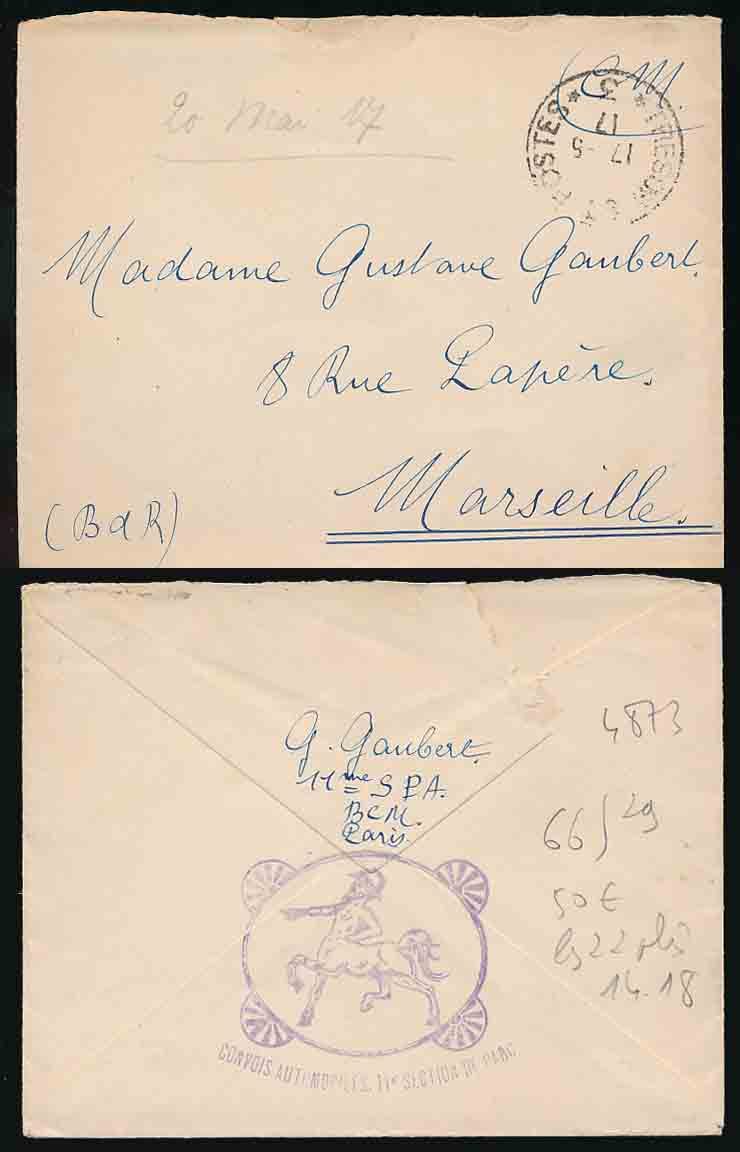 20 Mai 17
CM.
TRESOR ET POSTES
* 3 *
17
17 -5
Madame Gustave Gaubert.
8 Rue Lapère.
Marseille.
(B d R)
G. Gaubert.
11me S P A.
BCM.
Paris.
4873
66) 29
50€
les 22 plis
14.18
CONVOIS AUTOMOBILES. 11e SECTION DE PARC